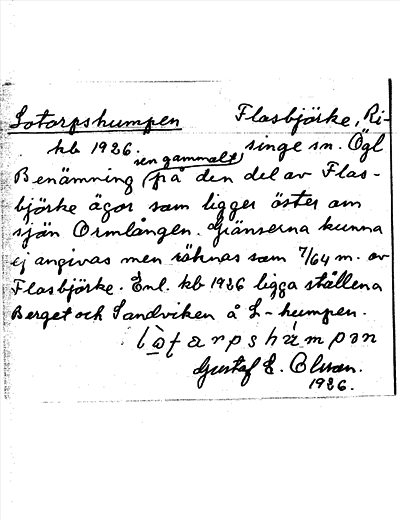 Lotorpshumpen Flasbjörke, Ri-
kb 1926. singe sn. Ögl
Benämning (sen gammalt) på den del av Flas-
björke ägor som ligger öster om
sjön Ormlången. Gränserna kunna
ej angivas men räknas som 7/64 m. av
Flasbjörke. Enl. kb 1926 ligga ställena
Berget och Sandviken å L-humpen.
Gustaf E. Olson.
1926.